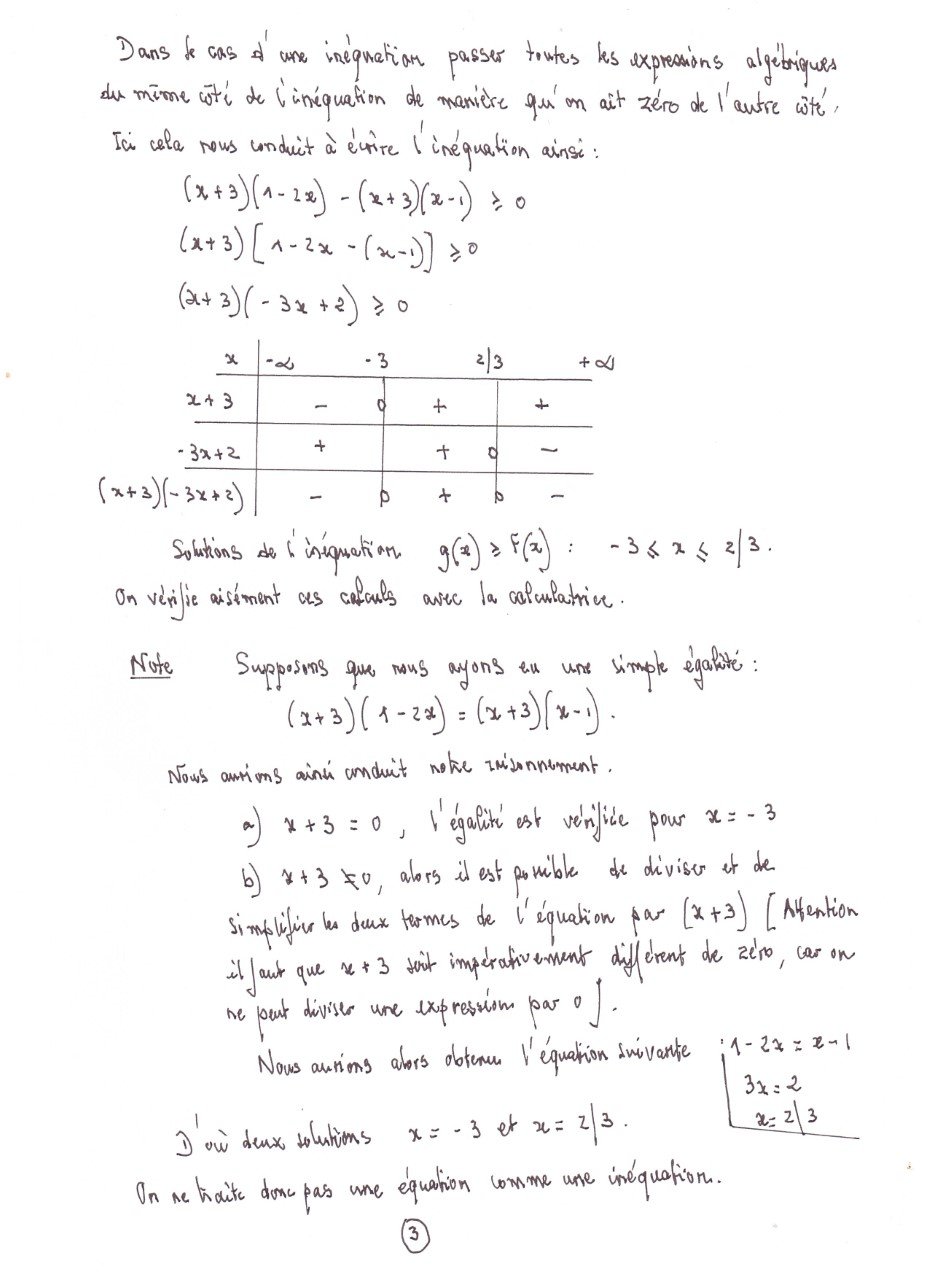 Dans le cas d'une inéquation passer toutes les expressions algébriques
du même côté de l'inéquation de manière qu'on ait zéro de l'autre côté.
Ici cela nous conduit à écrire l'inéquation ainsi :
(x+3)(1-2x) - (x+3)(x-1) ⩾ 0
(x+3)[1-2x-(x-1)] ⩾ 0
(x+3)(-3x+2) ⩾ 0
x | -∞ -3 2/3 +∞
x+3 | - 0 + +
-3x+2 | + + 0 -
(x+3)(-3x+2) | - 0 + 0 -
Solutions de l'inéquation g(x) ⩾ F(x) : -3 ⩽ x ⩽ 2/3.
On vérifie aisément ces calculs avec la calculatrice.
Note Supposons que nous ayons eu une simple égalité :
(x+3)(1-2x) = (x+3)(x-1).
Nous aurions ainsi conduit notre raisonnement.
a) x+3 = 0, l'égalité est vérifiée pour x = -3
b) x+3 ≠ 0, alors il est possible de diviser et de
simplifier les deux termes de l'équation par (x+3) [Attention
il faut que x+3 soit impérativement différent de zéro, car on
ne peut diviser une expression par 0].
Nous aurions alors obtenu l'équation suivante : 1-2x = x-1
3x = 2
x = 2/3
D'où deux solutions x = -3 et x = 2/3.
On ne traite donc pas une équation comme une inéquation.
3